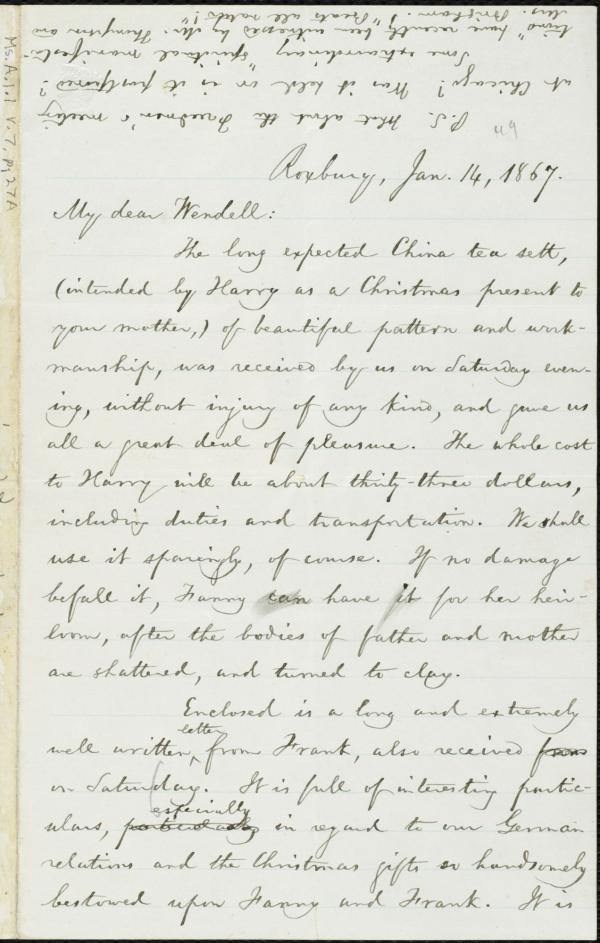 Ms.A.1.1 v.7, pg 27A
Roxbury, Jan. 14, 1867.
My dear Wendell:
The long expected China tea sett,
(intended by Harry as a Christmas present to
your mother,) of beautiful pattern and work-
manship, was received by us on Saturday even-
ing, without injury of any kind, and gave us
all a great deal of pleasure. The whole cost
to Harry will be about thirty-three dollars,
including duties and transportation. We shall
use it sparingly, of course. If no damage
befall it, Fanny can have it for her heir-
loom, after the bodies of father and mother
are shattered, and turned to clay.
Enclosed is a long and extremely
well written letter, from Frank, also received from
on Saturday. It is full of interesting partic-
ulars, particularly especially in regard to our German
relations and the Christmas gifts so handsomely
bestowed upon Fanny and Frank. It is
P.S. What about the Freedmen's meeting
at Chicago? Was it held, or is it postponed?
Some extraordinary "spiritual manifesta-
tions" have recently been witnessed by Mr. Thompson and
Mrs. Brigham. "Beats all natur!"